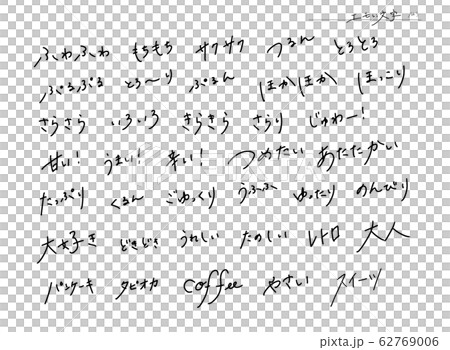 エモい文字
ふわふわ もちもち サクサク つるん とろとろ
ぷるぷる とろ〜り ぷるん ほかほか ほっこり
さらさら いろいろ きらきら さらり じゅわー!
甘い! うまい! 辛い! つめたい あたたかい
たっぷり くるん ごゆっくり うふふ ゆったり のんびり
大好き どきどき うれしい たのしい レトロ 大人
パンケーキ タピオカ coffee やさい スイーツ
pixta.jp - 62769006